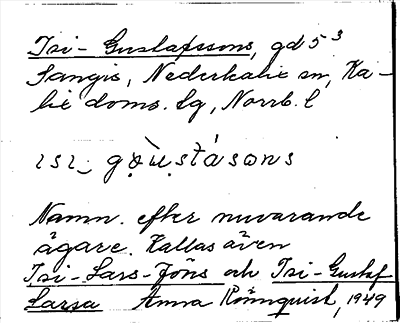 Isi-Gustafssons, gd 5³
Sangis, Nederkalix sn, Ka-
lix doms. lg, Norrb. l
ısı- gọ̀ùstásons
Namn. efter nuvarande
ägare. Kallas även
Isi-Lars-Jöns och Isi-Gustaf
Larsa Anna Rönnquist, 1949